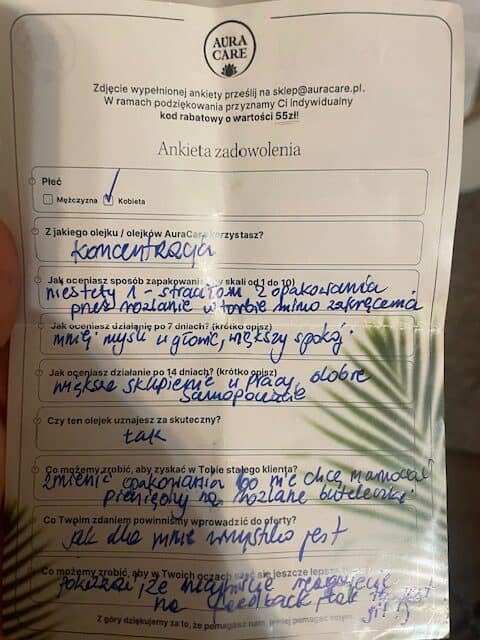 AURA
CARE
Zdjęcie wypełnionej ankiety prześlij na sklep@auracare.pl.
W ramach podziękowania przyznamy Ci indywidualny
kod rabatowy o wartości 55zł!
Ankieta zadowolenia
Płeć
Mężczyzna Kobieta
Z jakiego olejku / olejków AuraCare korzystasz?
koncentracja
Jak oceniasz sposób zapakowania (w skali od 1 do 10)
niestety 1 - straciłam 2 opakowania
przez rozlanie w torbie mimo zakręcenia
Jak oceniasz działanie po 7 dniach? (krótko opisz)
mniej myśli w głowie, większy spokój.
Jak oceniasz działanie po 14 dniach? (krótko opisz)
większe skupienie w pracy, dobre
samopoczucie
Czy ten olejek uznajesz za skuteczny?
tak
Co możemy zrobić, aby zyskać w Tobie stałego klienta?
zmienić opakowania bo nie chcę marnować
pieniędzy na rozlane buteleczki
Co Twoim zdaniem powinniśmy wprowadzić do oferty?
jak dla mnie wszystko jest
Co możemy zrobić, aby w Twoich oczach stać się jeszcze lepszą
pokazać, że reagujecie
na feedback, tak
Z góry dziękujemy za to, że pomagasz nam lepiej pomagać innym.